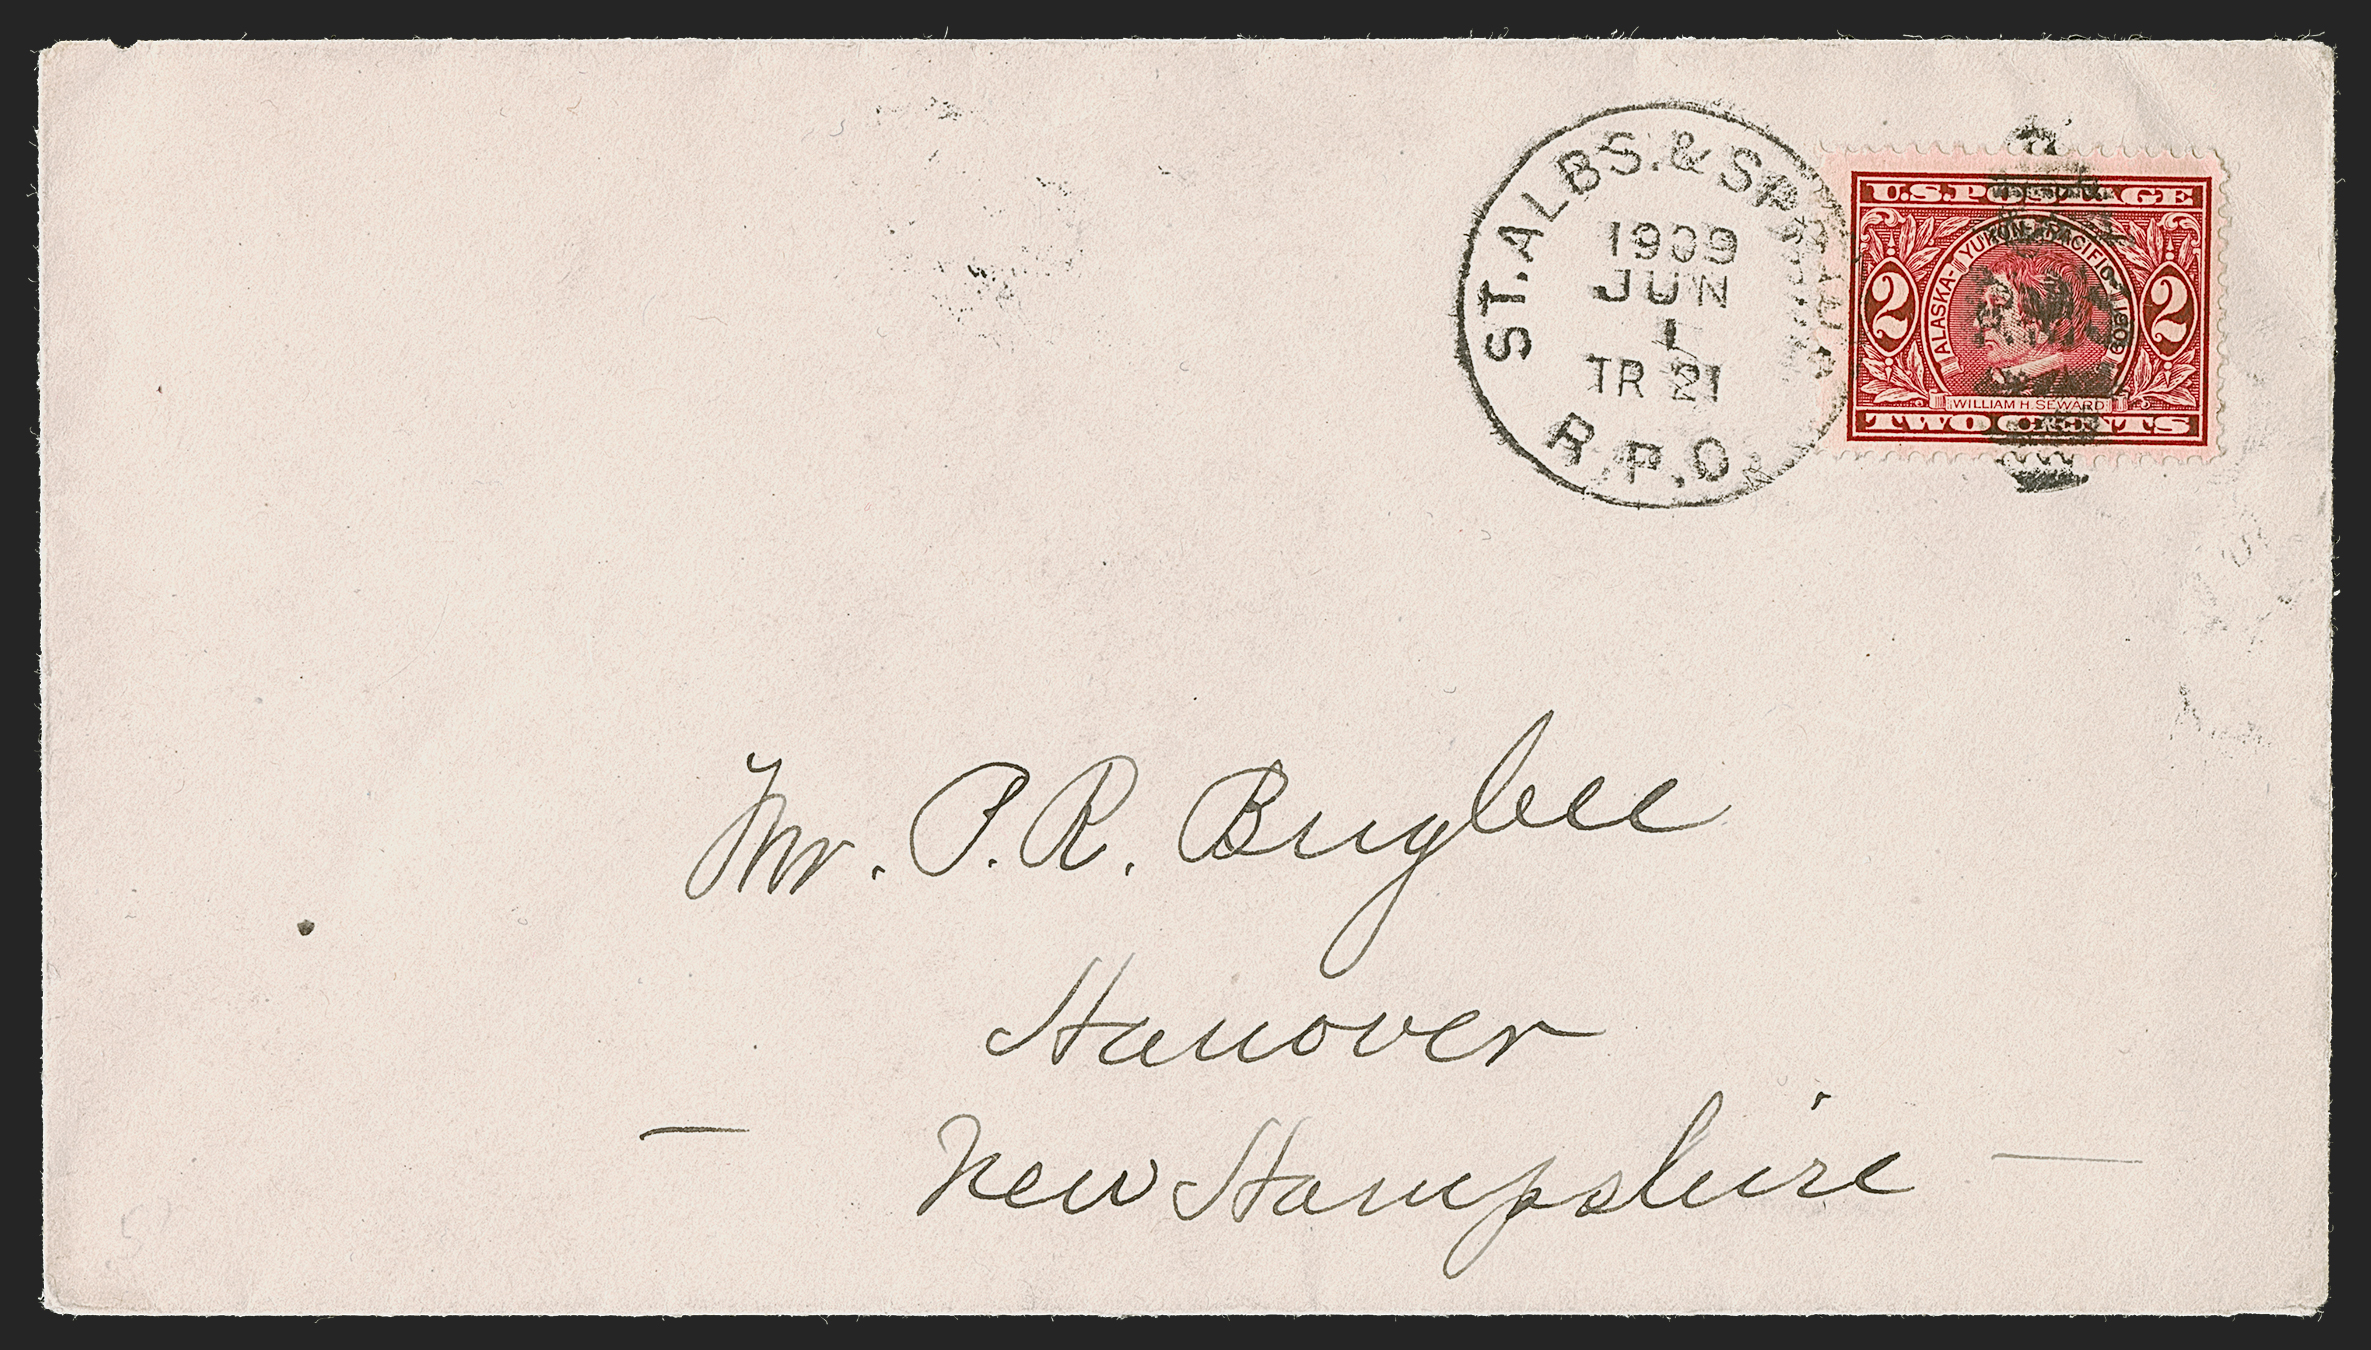 ST. ALBS. & SP
1909
JUN
1
TR 21
R.P.O.
U.S. POSTAGE
ALASKA-YUKON-PACIFIC 1909
2 2
WILLIAM H. SEWARD
TWO CENTS
Mr. P. R. Bugbee
Hanover
— New Hampshire —